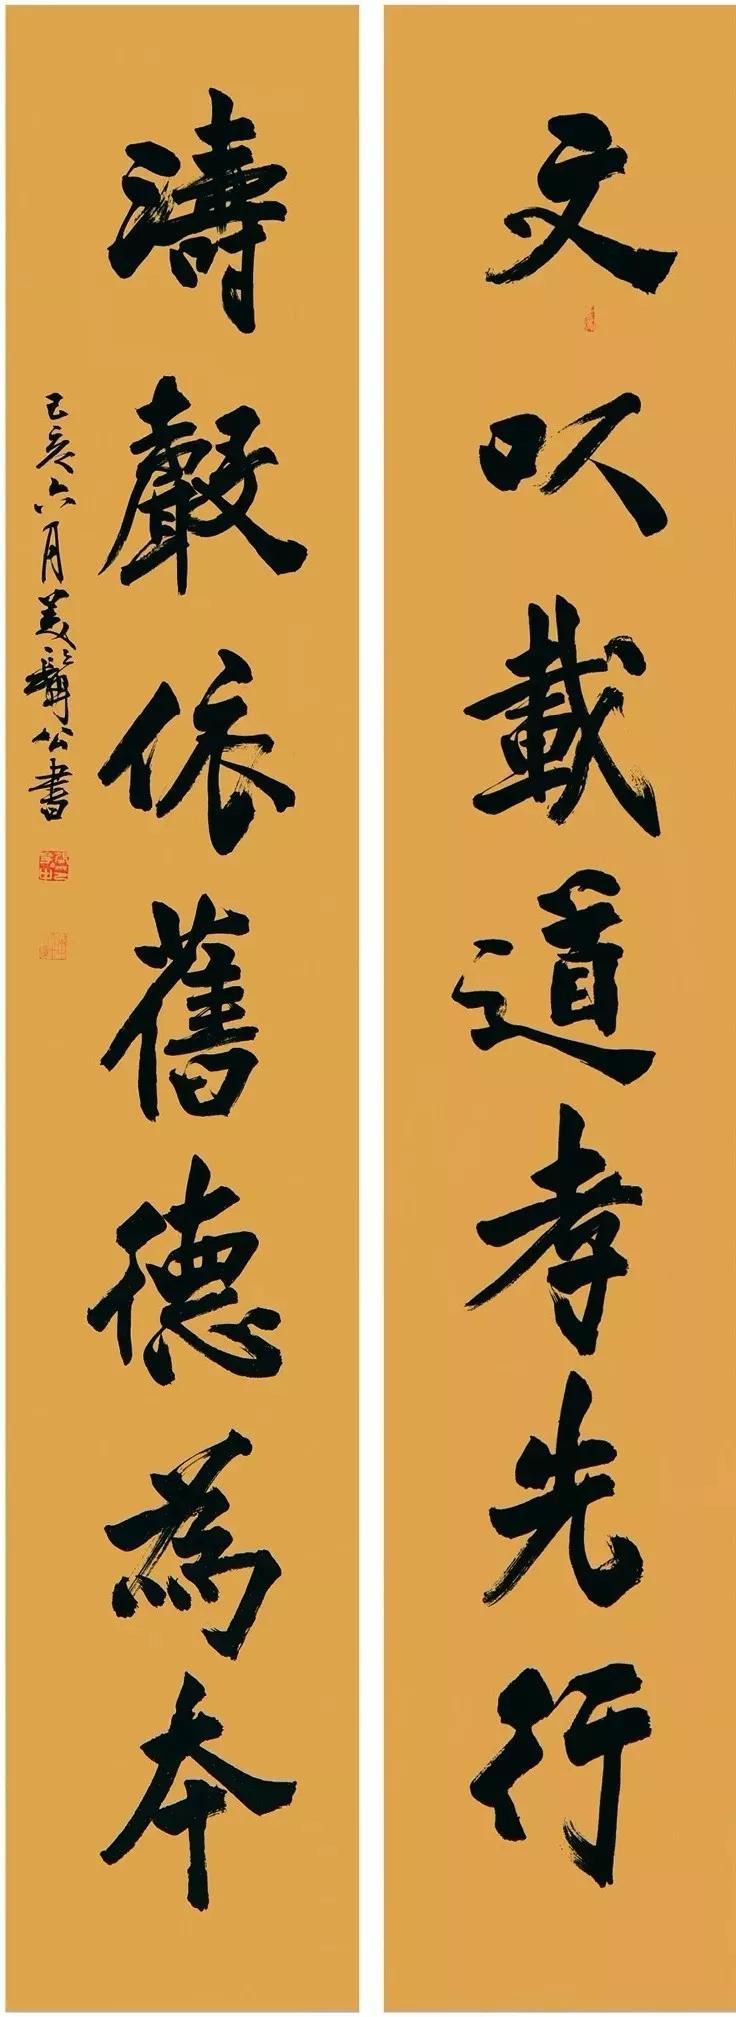 文以載道孝先行
濤聲依舊德為本
己亥六月美髯公書